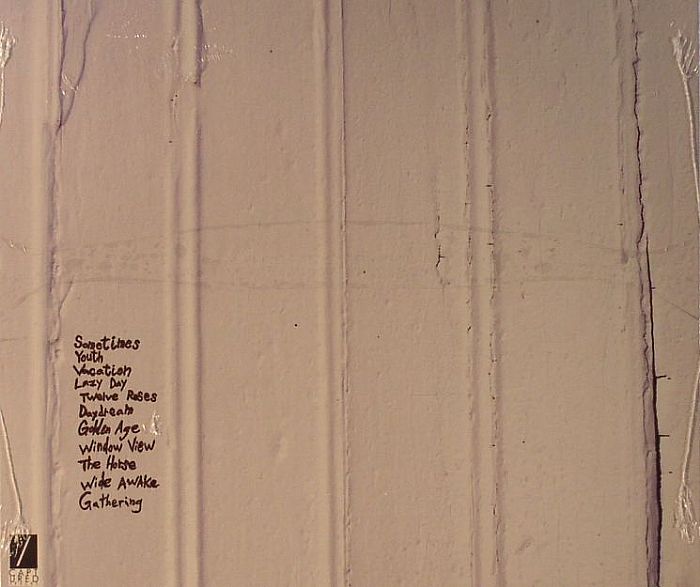 Sometimes
Youth
Vacation
Lazy Day
Twelve Roses
Daydream
Golden Age
Window View
The Horse
Wide Awake
Gathering
CAPT
URED